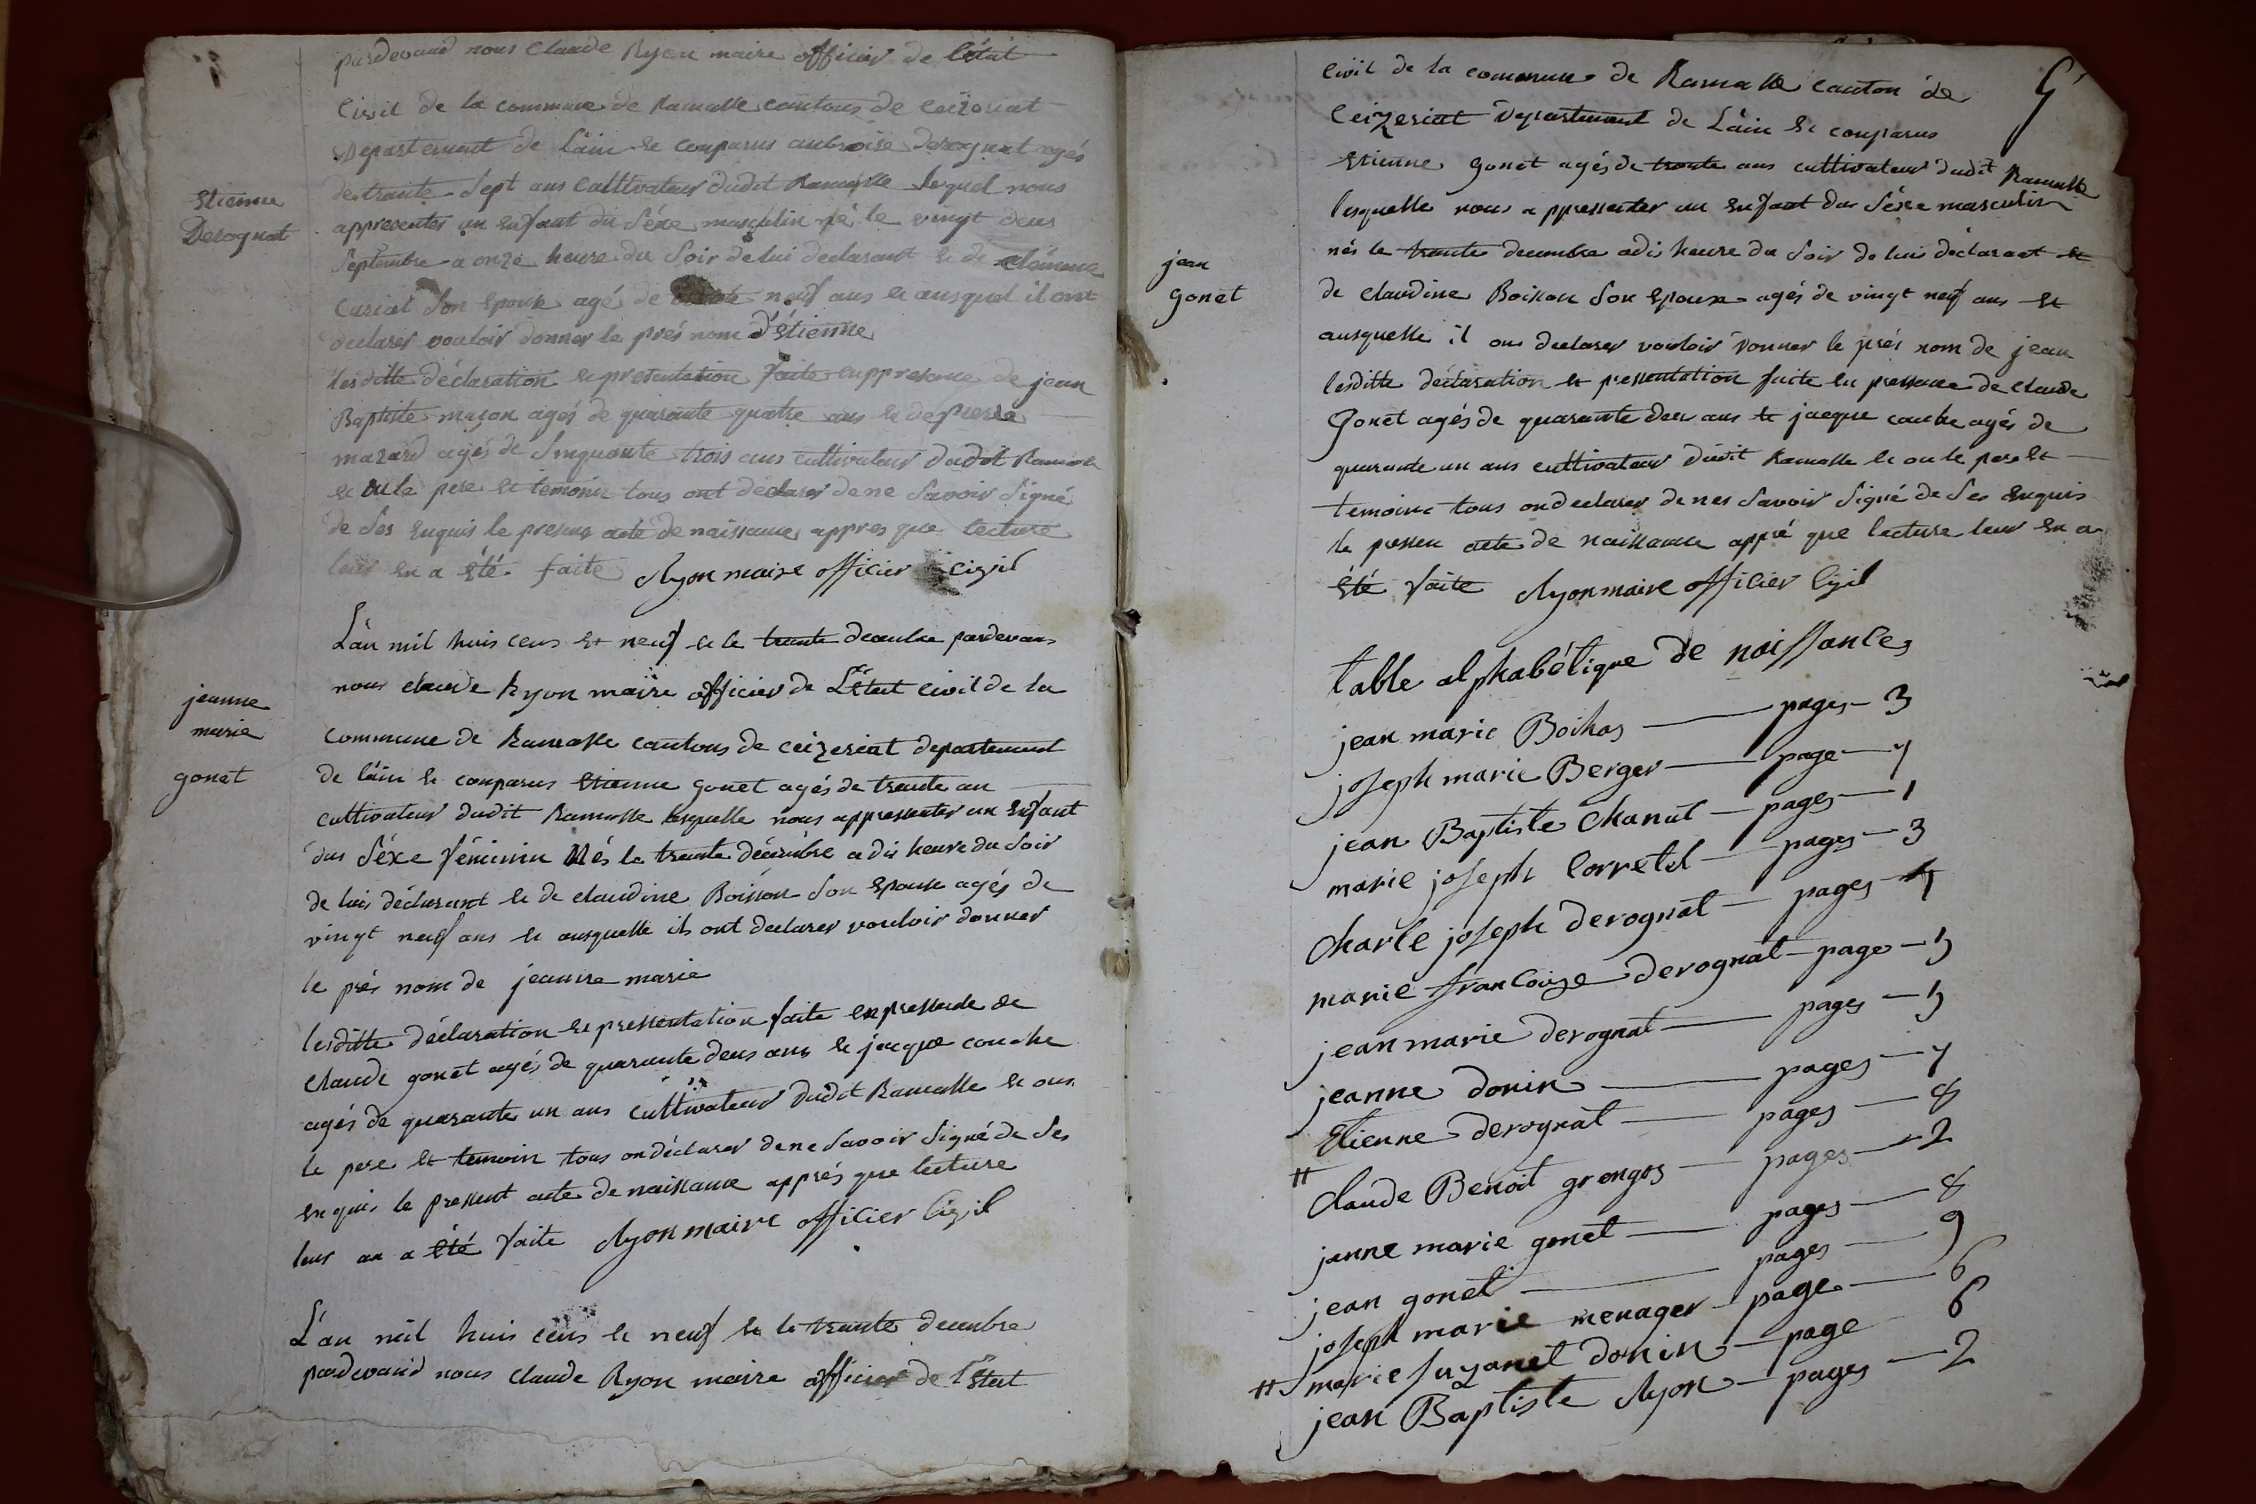 pardevand nous Claude Ryon maire officier de l'état
Civil de la commune de Ramasse cantons de Ceizeriat
Departement de l'ain et comparus ambroise derognat agés
de trante Sept ans Cultivateur dudit Ramasse lequel nous
Etienne
Derognat
appresenter un enfant du Séxe masculin né le vingt deus
Septembre a onze heure du Soir de lui declarant et de
Curial Son Epouse agé de neuf ans et ausquel il ont
declarer vouloir donner le prés nom d'étienne
lesditte déclaration et presentation faite enppresence de jean
Baptiste mazon agés de quarante quatre ans et de pierre
mazard agés de Sinquante trois ans cultivateur dudit Ramasse
et le pere et temoin tous ont déclarer de ne Savoir Signé
de Ses Enquis le presens acte de naissance appres que lecture
leur en a été faite Ryon maire officier Civil
L'an mil huis cens et neuf et le trente decembre pardevans
nous claude Ryon maire officier de L'état civil de la
jeanne
marie
gonet
commune de Ramasse cantons de ceizeriat departement
de l'ain et comparus Etienne gonet agés de trante an
cultivateur dudit Ramasse lesquelle nous appressenter un Enfant
dus Séxe féminin Nés le trante décembre a dis heure du Soir
de luis déclarant et de claudine Boisson Son Epouse agés de
vingt neuf ans et ausquelle ils ont declarer vouloir donner
le prés nom de jeanne marie
lesditte déclaration et pressentation faite en pressende de
Claude gonet agés de quarante deus ans et jacque couche
agés de quarante un ans cultivateur dudit Ramasse et ou
le pere et temoin tous on déclarer de ne Savoir Signé de Ses
enquis le pressent acte de naissance apprés que lecture
leur an a été faite Ryon maire officier Civil
L'an mil huis cens et neuf et le trante decembre
pardevand nous Claude Ryon maire officier de l'état
Civil de la commune de Ramasse Canton de
Ceizeriat Departement de L'ain et comparus
Etienne gonet agés de trante ans cultivateur dudit Ramasse
lesquelle nous appressenter un Enfant dus Séxe masculin
nés le trante decembre a dis heure du Soir de luis déclarant et
jean
gonet
de claudine Boisson Son Epouse agés de vingt neuf ans et
ausquelle il ons declarer vouloir donner le prés nom de jean
lesditte déclaration et pressentation faite en pressence de claude
Gonet agés de quarante deus ans et jacque couche agés de
quarante un ans cultivateur dudit Ramasse et ou le pere et
temoins tous on declarer de nes Savoir Signé de Ses Enquis
le pressen acte de naissance appré que lecture leur en a
été faite Ryon maire officier Civil
table alphabétique de naissances
jean marie Boihas pages 3
joseph marie Berger page 7
jean Baptiste Chanut pages 1
marie joseph Corretel pages 3
Charle joseph derognat pages
marie francoize derognat page 5
jean marie derognat pages 5
jeanne donin pages 7
Etienne derognat pages 8
Claude Benoit grongos pages 2
janne marie gonet pages 8
jean gonet pages 9
joseph marie menager page 6
marie suzanet donin page 6
jean Baptiste Ryon pages 2